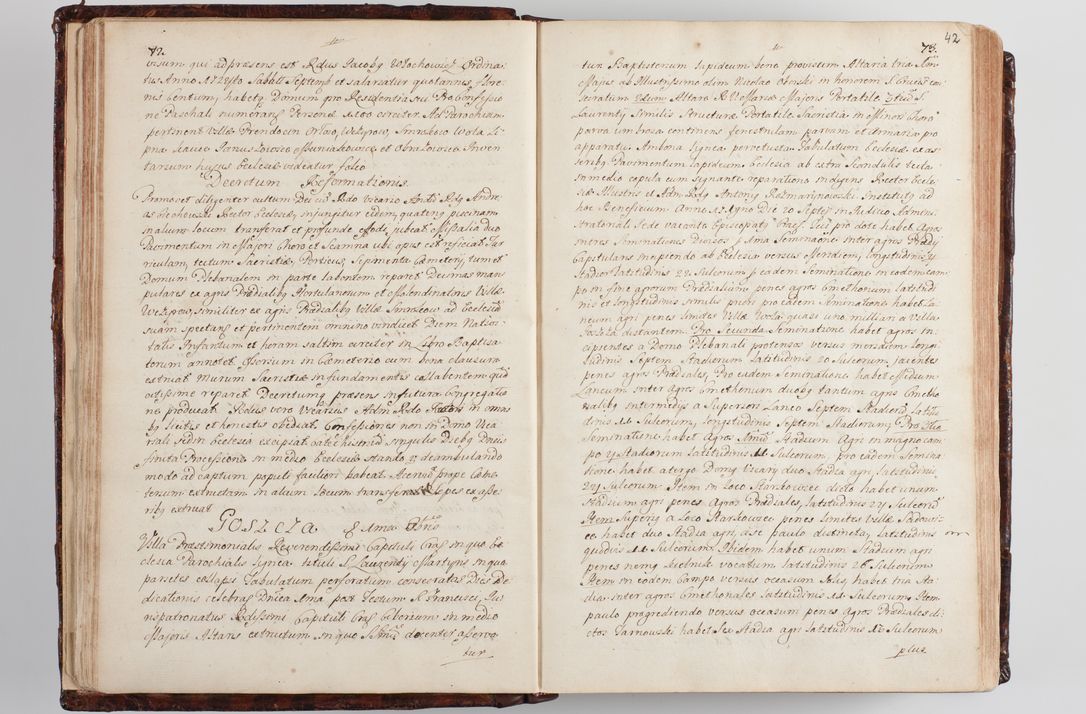 72.
visum qui ad præsens est Rdus Jacobq Włochowicz Ordina-
tus Anno 1724to Sabbo Septemb et salariatur quotannis, Flore-
nis Centum, habetq Domum pro Residentia sui Pro Confessio-
ne Paschali numerans Personæ circiter Ad Parochiam
pertinent Villæ Prendocin Orłow, Wężpow, Smroków Wola Li-
pna
tarium hujus Ecclesiæ videatur folio
Decretum Reformationis.
Promovet diligenter cultum Dei
as Rector Ecclesiæ, injungitur eidem, quatenq piscinam
in alium locum transferat et profunde effodi jubeat Missalia duo
Pavimentum in Majori Choro et Scamna ubi opus est reficiat Tur-
riculam, tectum Sacristiæ, Porticus, Sepimenta Cæmeterij tum et
Domum Plebanalem in parte labentem reparet Decimas mani-
pulares ex agris Prædialibq Hortulanorum et Molendinatoris Villæ
Wężpow, similiter ex agris Prædialibq Villæ Smroków ad Ecclesiā
suam spectans et pertinentem omnino vindicet Diem Nativi-
tatis Infantium et horam saltim circiter in Libro Baptisa-
torum annotet Ossorium in Cæmeterio cum bona clausura
extruat Murum Sacristiæ in fundamentis collabentem quā
citissime reparet Decretumq præsens in futura Congregatio-
ne producat Rdus vero Vicarius Adm Rdo Rectori in omni-
bq licitis et honestis obediat Confessiones non in Domo Vica-
riali sed in Ecclesia excipiat catechismū singulis Diebq Dnicis
finita Processione in medio Ecclesiæ stando v. deambulando
modo ad captum populi faciliori habeat Acervū prope Cæme-
terium extructam in alium Locum transferat Sepes ex asse-
ribq extruat
GOSZCZA
Villa Præstimonialis Reverendissimi Capituli Crac in qua Ec-
clesia Parochialis Lignea tituli S. Laurentij Martyris in qua
parietes collapsi Tabulatum perforatum consecrata Dies De-
dicationis celebrat Dnica Ima post Festum S. Francisci, Ju-
rispatronatus Rdissimi Capituli Crac Ciborium in medio
Majoris Altaris extructum in quo Ssmū decenter asserva-
tur
73.
42
tur Baptisterium lapideum bene provisum Altaria tria
Majus ab Illustrissimo olim Nicolao Oborski in honorem S. Crucis con-
secratum 2dum Altare B. V. Mariæ Majoris Portatile 3tium S.
Laurentij Similis Structuræ Portatile Sacristia in Minori Choro
parva umbrosa continens fenestrulam parvam et Armaria pro
apparatu Ambona lignea pervetusta Tabulatum Ecclesiæ ex as-
seribq Pavimentum lapideum Ecclesia ab extra Scandulis tecta
in medio cupula cum signante reparatione indigens Rector Eccle-
siæ Illustris et Adm Rdq Antonius Rozmarijnowski Institutq ad
hoc Beneficium Anno Die 20 Septemb in Judicio Admini-
stratoriali Sede vacante Episcopatq Crac. Qui pro dote habet Agros
intres Seminationes Divisos p Ima Seminaone inter agros Prædij
Capitularis incipiendo ab Ecclesia versus Meridiem, longitudinis
Stadior Latitudinis 22 Sulcorum p eadem Seminatione in eodem cam-
po in fine agrorum Prædialium penes agros Cmethonum latitudi-
nis et longitudinis similis priori pro eadem Seminatione habet La-
neum agri penes limites Villæ Wola quasi uno milliari a Villa
Goszcza distantem. Pro Secunda Seminatione habet agros in-
cipientes a Domo Plebanali protensos versus Meridiem longi-
tudinis Septem Stadiorum Latitudinis 20 Sulcorum, jacentes
penes agros Prædiales, Pro eadem Seminatione habet Medium
Laneum inter Agros Cmethonum duobq tantum agris Cmetho-
nalibq intermedijs a Superiori Laneo Septem Stadiorū Latitu-
dinis 16 Sulcorum, longitudinis Septem Stadiorum, Pro 3tia
Seminatione habet Agros Unū Stadium Agri in magno cam-
po Stadiorum Latitudinis 11 Sulcorum, pro eadem Semina-
tione habet atergo Domq Vicarij duo Stadia agri, latitudinis
24 Sulcorum Item in Loco Starkowiec dicto habet unum
Stadium agri penes Agros Prædiales, latitudinis 24 Sulcorū
Item Superiq a Loco Starkowiec penes limites Villæ Sadowi-
ce habet duo Stadia agri, a se paulo distincta, latitudinis
quodvis 11 Sulcorum, Ibidem habet unum Stadium agri
penes nemq vocatum latitudinis 26 Sulcorum
Item in eodem Campo versus occasum Solis, habet tria sta-
dia inter agros Cmethonales latitudinis 11 Sulcorum, Item
paulo progrediendo versus occasum penes Agros Prædiales di-
ctos Tarnowski habet Sex Stadia agri latitudinis 12 Sulcorum
plus